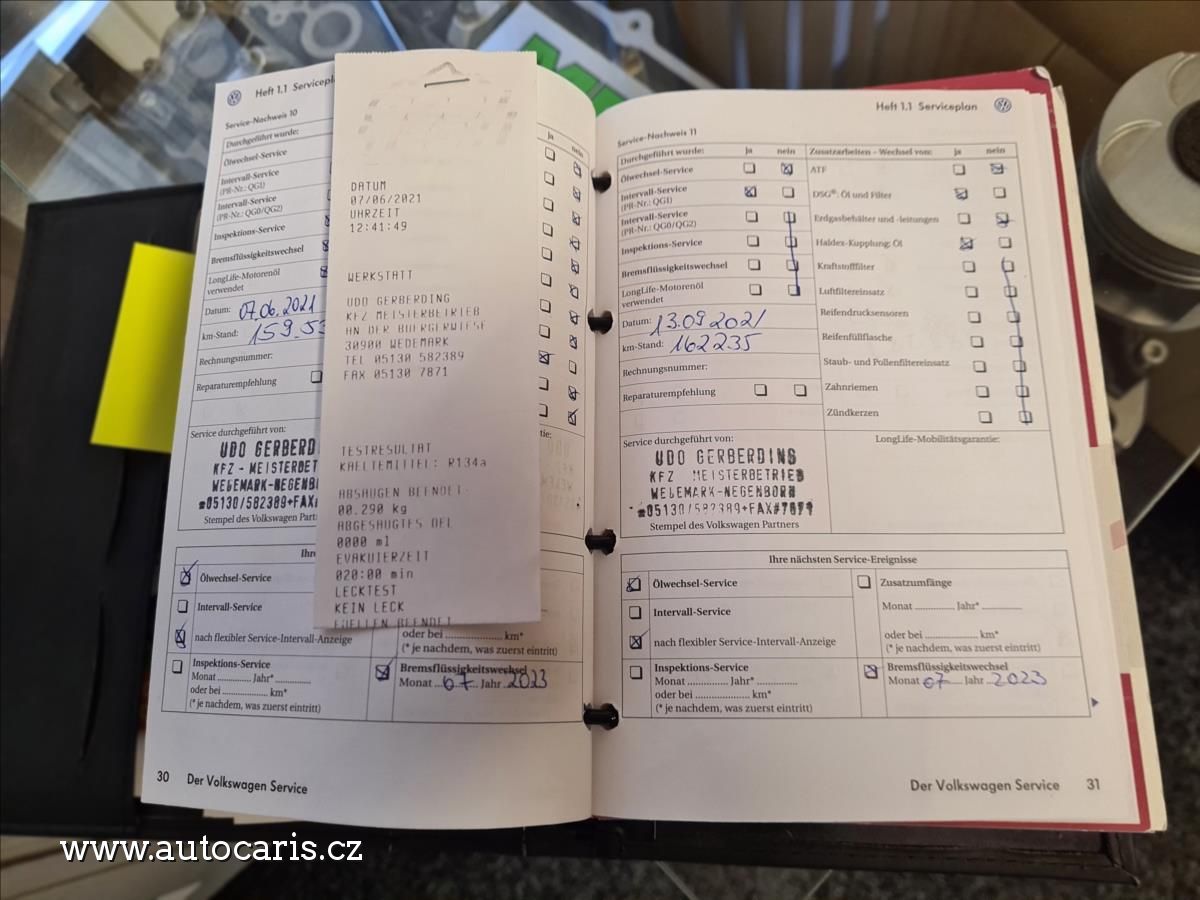 Heft 1.1 Serviceplan
Service-Nachweis 10
Durchgeführt wurde:
Ölwechsel-Service
Intervall-Service
(PR-Nr.: QG1)
Intervall-Service
(PR-Nr.: QG0/QG2)
Inspektions-Service
Bremsflüssigkeitswechsel
LongLife-Motorenöl
verwendet
Datum: 07.06.2021
km-Stand: 159.5
Rechnungsnummer:
Reparaturempfehlung
Service durchgeführt von:
UDO GERBERD
KFZ - MEISTERBET
WEDEMARK-NEGENB
☎05130/582389+FAX
Stempel des Volkswagen Part
Ihre
Ölwechsel-Service
Intervall-Service
nach flexibler Service-Intervall-Anzeige
Inspektions-Service
Monat Jahr*
oder bei km*
(* je nachdem, was zuerst eintritt)
ja nein
oder bei km*
(* je nachdem, was zuerst eintritt)
Bremsflüssigkeitswechsel
Monat 07 Jahr 2023
30 Der Volkswagen Service
DATUM
07/06/2021
UHRZEIT
12:41:49
WERKSTATT
UDO GERBERDING
KFZ MEISTERBETRIEB
AN DER BUERGERWIESE
30900 WEDEMARK
TEL 05130 582389
FAX 05130 7871
TESTRESULTAT
KAELTEMITTEL: R134a
ABSAUGEN BEENDET
00.290 kg
ABGESAUGTES OEL
0000 ml
EVAKUIERZEIT
020:00 min
LECKTEST
KEIN LECK
FUELLEN BEENDET
Heft 1.1 Serviceplan
Service-Nachweis 11
Durchgeführt wurde: ja nein
Ölwechsel-Service
Intervall-Service
(PR-Nr.: QG1)
Intervall-Service
(PR-Nr.: QG0/QG2)
Inspektions-Service
Bremsflüssigkeitswechsel
LongLife-Motorenöl
verwendet
Datum: 13.09.2021
km-Stand: 162235
Rechnungsnummer:
Reparaturempfehlung
Zusatzarbeiten - Wechsel von: ja nein
ATF
DSG®: Öl und Filter
Erdgasbehälter und -leitungen
Haldex-Kupplung: Öl
Kraftstofffilter
Luftfiltereinsatz
Reifendrucksensoren
Reifenfüllflasche
Staub- und Pollenfiltereinsatz
Zahnriemen
Zündkerzen
Service durchgeführt von:
UDO GERBERDING
KFZ MEISTERBETRIEB
WEDEMARK-NEGENBORN
☎05130/582389+FAX#7871
Stempel des Volkswagen Partners
LongLife-Mobilitätsgarantie:
Ihre nächsten Service-Ereignisse
Ölwechsel-Service
Intervall-Service
nach flexibler Service-Intervall-Anzeige
Inspektions-Service
Monat Jahr*
oder bei km*
(* je nachdem, was zuerst eintritt)
Zusatzumfänge
Monat Jahr*
oder bei km*
(* je nachdem, was zuerst eintritt)
Bremsflüssigkeitswechsel
Monat 07 Jahr 2023
Der Volkswagen Service 31
www.autocaris.cz